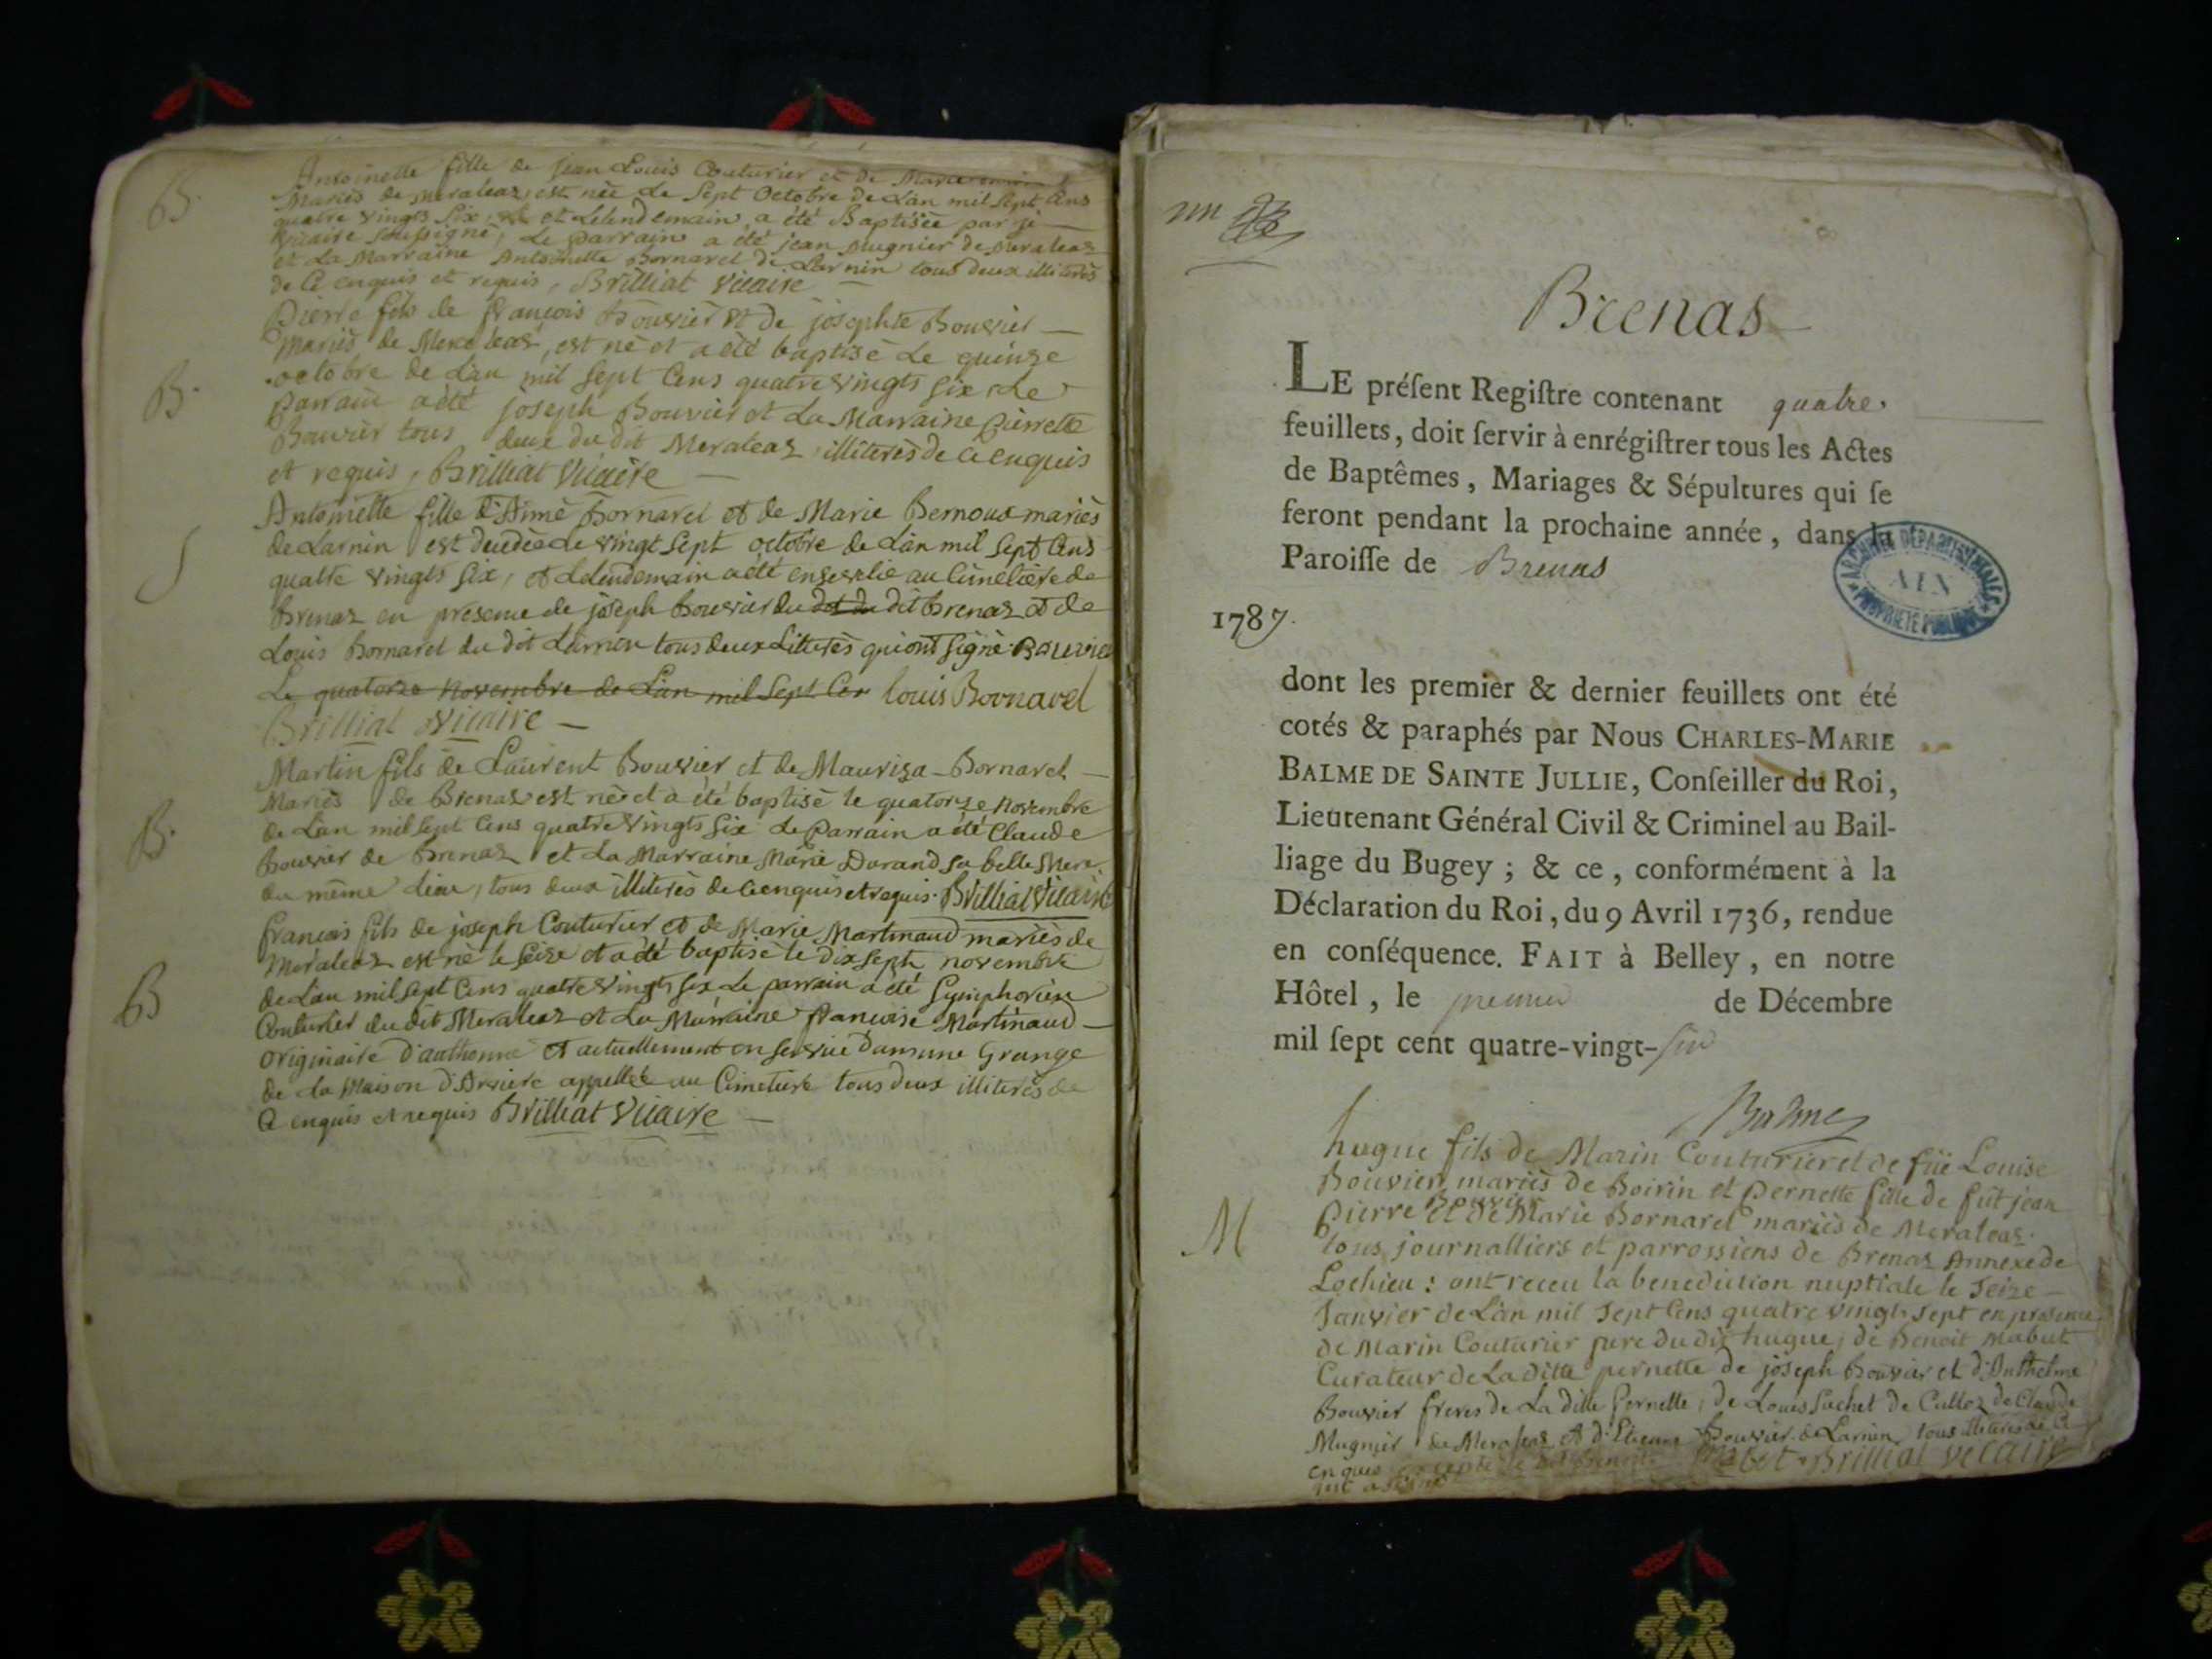 B.
Antoinette fille de jean Louis Couturier et de Marie
Mariés de Meraleaz est née Le Sept Octobre de L'an mil Sept Cens
quatre vingts Six, et Lelendemain a été Baptisée par je
vicaire soussigné, Le parrain a été jean Mugnier de Meraleaz
et La Marraine Antoinette Bornarel de Larnin tous deux illiterés
de Ce enquis et requis, Brilliat Vicaire
B.
Pierre fils de François Bouvier et de josephte Bouvier
Mariés de Meraleaz, est né et a été baptisé Le quinze
octobre de L'an mil Sept Cens quatre vingts Six, Le
parrain a été joseph Bouvier et La Marraine Pierrette
Bouvier tous deux du dit Meraleaz illiterés de Ce enquis
et requis, Brilliat Vicaire
S
Antoinette fille d'Aimé Bornarel et de Marie Bernoux mariés
de Larnin est decedée Le vingt Sept octobre de L'an mil Sept Cens
quatre vingts Six, et Lelendemain a été ensevelie au Cimetière de
Brenaz en presence de joseph Bouvier du dot du dit Brenaz et de
Louis Bornarel du dit Larnin tous deux Litterés qui ont signé. Bouvier
Le quatorze Novembre de L'an mil Sept Cen louis Bornarel
Brilliat Vicaire
B.
Martin fils de Laurent Bouvier et de Mauriza Bornarel
Mariés de Brenaz est né et a été baptisé le quatorze Novembre
de L'an mil Sept Cens quatre vingts Six Le Parrain a été Claude
Bouvier de Brenaz et La Marraine Marie Durand sa belle Mere
du même Lieu, tous deux illiterés de Ce enquis et requis. Brilliat Vicaire
B
François fils de joseph Couturier et de Marie Martinaud mariés de
Meraleaz est né le Seize et a été baptisé le Dix Sept novembre
de L'an mil Sept Cens quatre vingts Six Le parrain a été Symphorien
Couturier du dit Meraleaz et La Marraine Françoise Martinaud
originaire d'authonne et actuellement en service dans une Grange
de La Maison d'Arviere appellée au Cimetiere tous deux illiterés de
Ce enquis et requis Brilliat Vicaire
un
Brenas
LE préſent Regiſtre contenant quatre
feuillets, doit ſervir à enrégiſtrer tous les Actes
de Baptêmes, Mariages & Sépultures qui ſe
feront pendant la prochaine année, dans la
Paroiſſe de Brenas
ARCHIVES DÉPARTEMENTALES AIN PROPRIÉTÉ PUBLIQUE
1787.
dont les premier & dernier feuillets ont été
cotés & paraphés par Nous CHARLES-MARIE
BALME DE SAINTE JULLIE, Conſeiller du Roi,
Lieutenant Général Civil & Criminel au Bail-
liage du Bugey ; & ce, conformément à la
Déclaration du Roi, du 9 Avril 1736, rendue
en conſéquence. FAIT à Belley, en notre
Hôtel, le premier de Décembre
mil ſept cent quatre-vingt-six
Balme
M
hugue fils de Marin Couturier et de füe Louise
Bouvier mariés de Boirin et Pernette fille de füt jean
Pierre Bouvier et de Marie Bornarel mariés de Meraleaz.
tous journalliers et parroissiens de Brenaz Annexe de
Lochieu : ont receu la benediction nuptiale le Seize
Janvier de L'an mil Sept Cens quatre vingt Sept en presence
de Marin Couturier pere du dit hugue, de Benoit Mabut
Curateur de La ditte pernette de joseph Bouvier et d'Anthelme
Bouvier freres de La ditte Pernette, de Louis Suchet de Culloz de Claude
Mugnier de Meraleaz et d'Etienne Bouvier de Larnin, tous illiterés de Ce
enquis excepté le dit Benoit Mabut Brilliat Vicaire